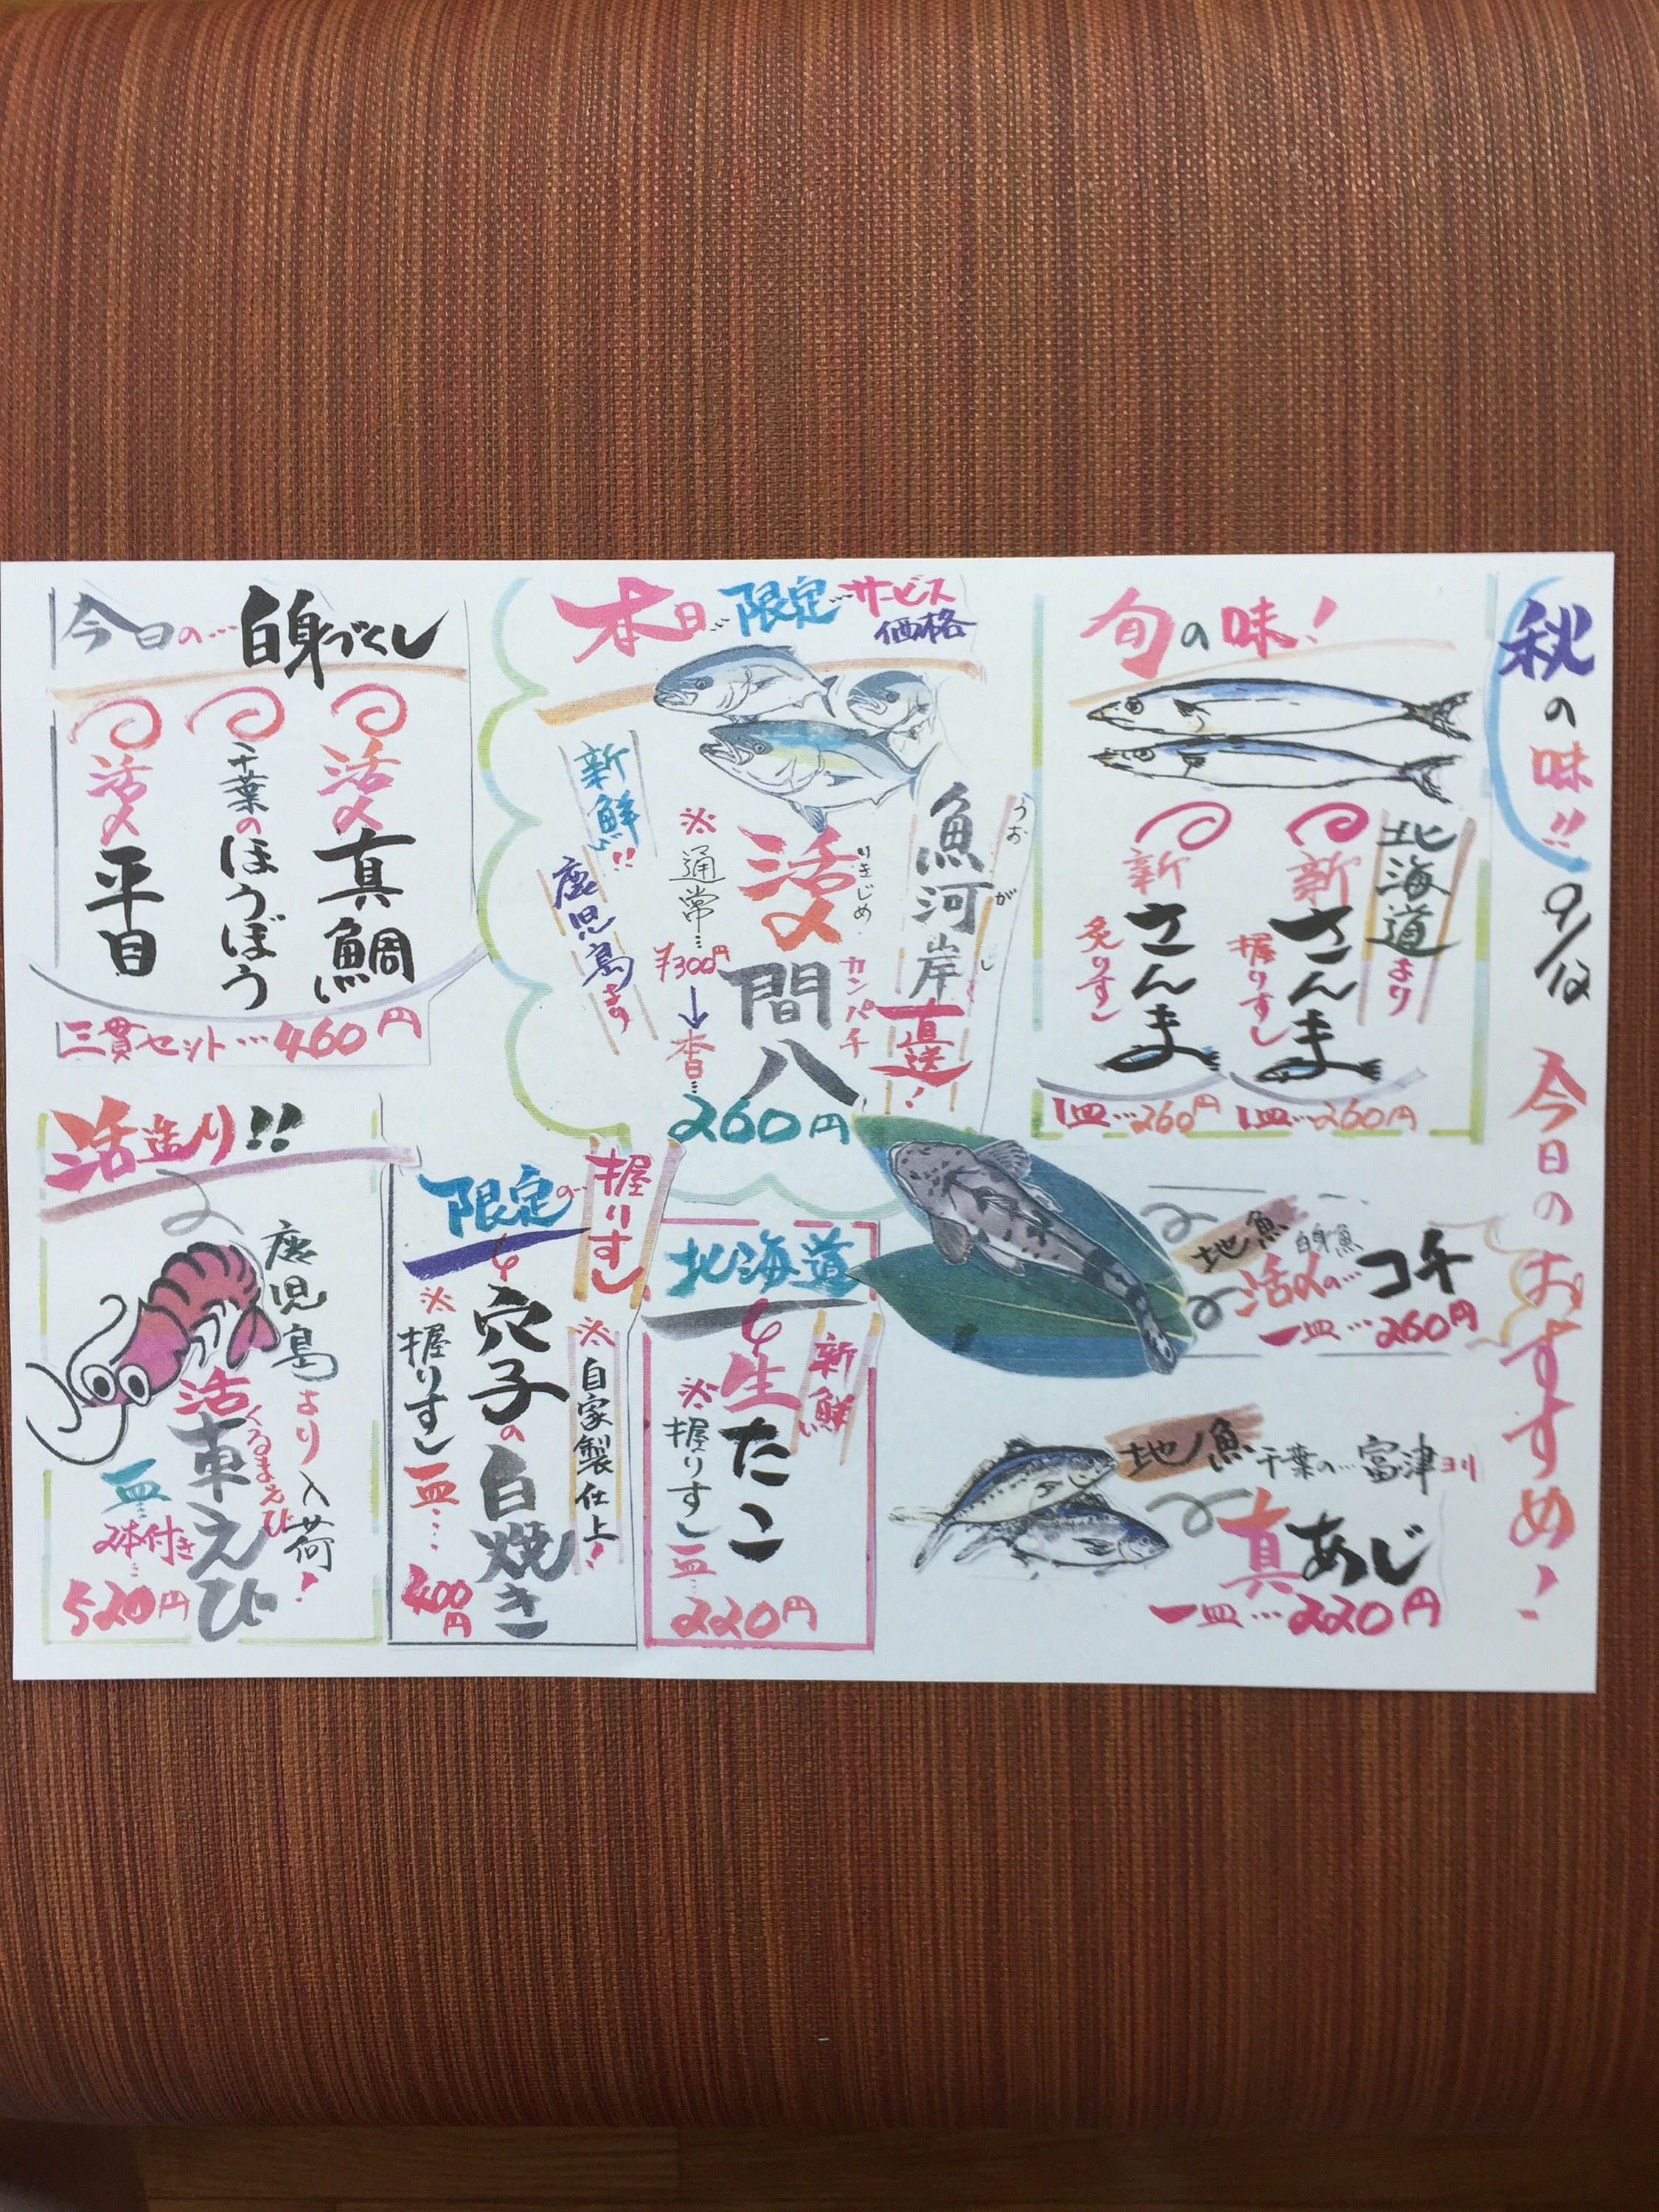 秋の味!! 9/12 今日のおすすめ!
旬の味!
北海道より
新さんま
握りすし
1皿…260円
新さんま
炙りすし
1皿…260円
本日…限定…サービス
価格
魚河岸直送!
うおがし
活〆間八
カンパチ
※通常…¥300円
↓
本日…
260円
新鮮!!
鹿児島より
今日の…白身づくし
活〆真鯛
千葉のほうぼう
活〆平目
三貫セット…460円
地魚 白身魚
活〆の…コチ
一皿…260円
地魚 千葉の…富津ヨリ
真あじ
一皿…220円
北海道
新鮮
生たこ
※握りすし
一皿…
220円
限定の…握りすし
※自家製仕上!
穴子の白焼き
※握りすし
一皿…
400円
活造り!!
鹿児島より入荷!
活車えび
くるまえび
一皿…
2本付き…
520円